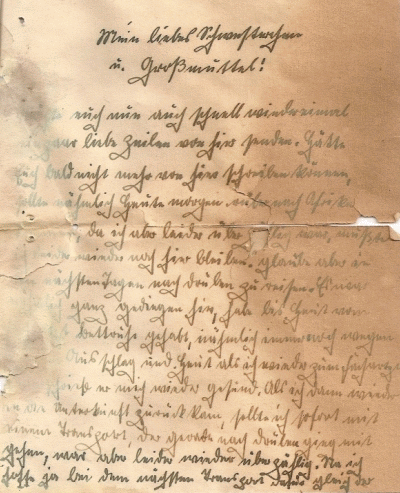 Mein liebes Schwesterchen
u. Großmuttel!
euch nun auch schnell wiedreimal
paar liebe Zeilen von hier senden. Hätte
euch bald nicht mehr von hier schreiben können,
sollte nämlich heute morgen nach Afrika
da ich aber leider über war, mußte
wieder noch hier bleiben. glaube aber in
nächsten Tagen nach drüben zu reisen. Es war
ich ganz gediegen hier, habe bis heut von
Bettruhe gehabt, nähmlich immer noch wegen
Ausschlag und heut als ich wieder zum
schrieb er mich wieder gesund. Als ich dann wieder
in die Unterkunft zurück kam, sollte ich sofort mit
einem Transport, der gerade nach drüben ging mit
gehen, war aber leider wieder überzählig. Na ich
hoffe ja bei dem nächsten Transport gleich der